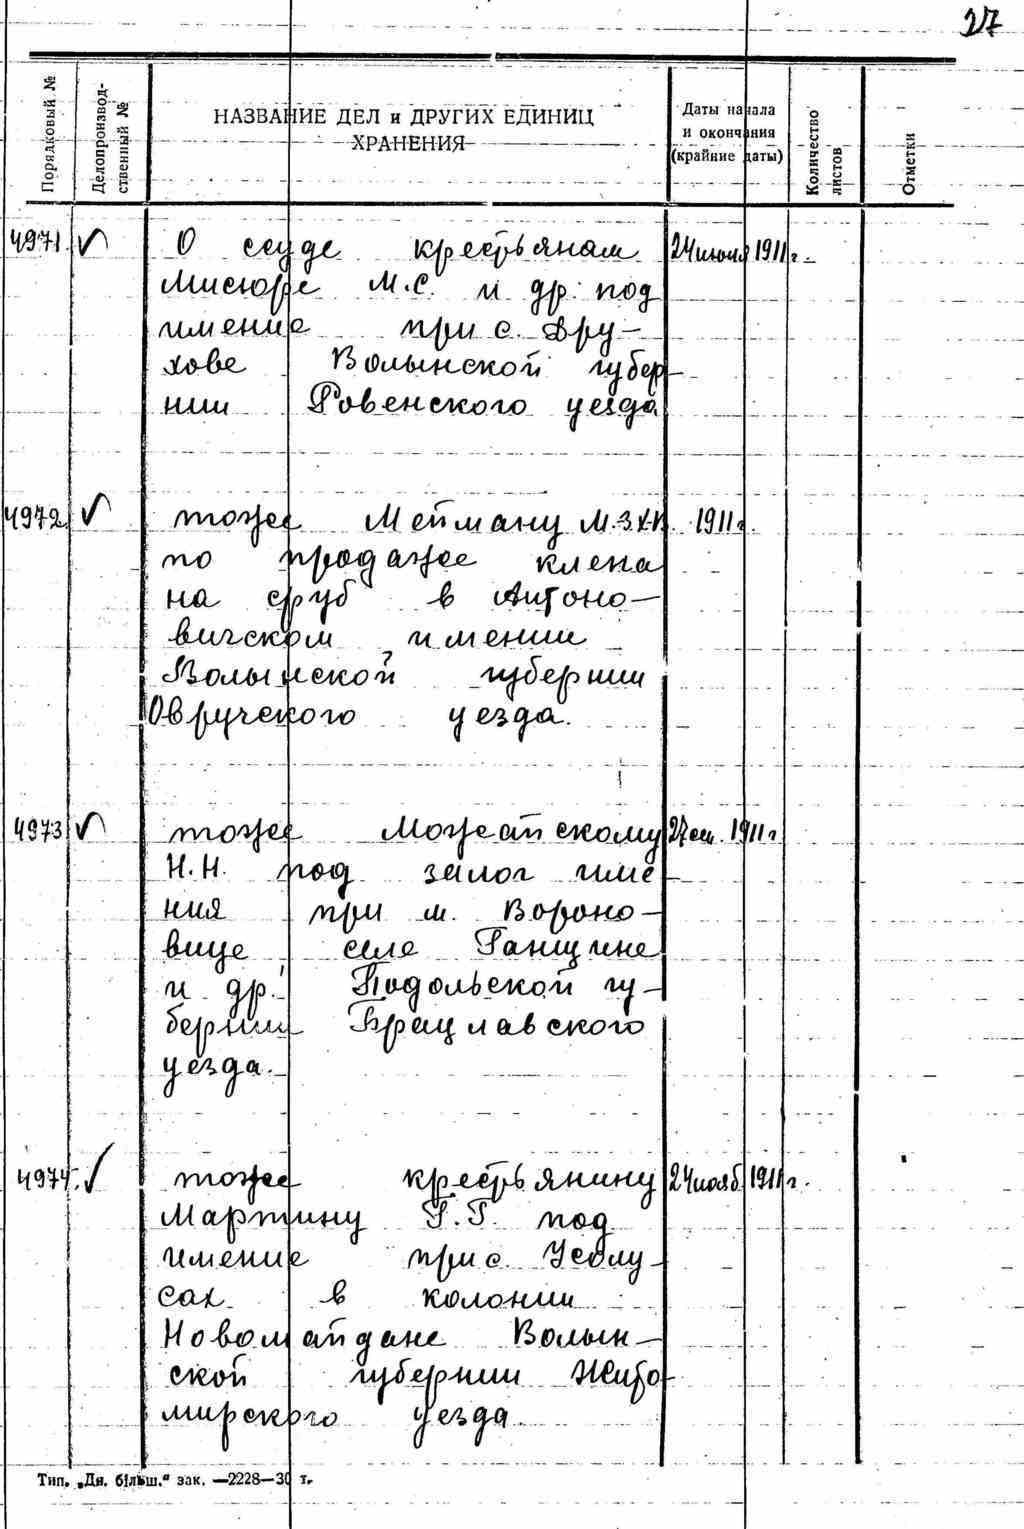 27
Порядковый №
Делопроизвод-
ственный №
НАЗВАНИЕ ДЕЛ и ДРУГИХ ЕДИНИЦ
ХРАНЕНИЯ
Даты начала
и окончания
(крайние даты)
Количество
листов
Отметки
4971. О ссуде крестьянам 24 июня 1911 г.
Мисюре М.С. и др. под
имение при с. Дру-
хове Волынской губер-
нии Ровенского уезда
4972. тоже Мейману 1911 г.
по продаже клена
на сруб в Антоно-
вичском имении
Волынской губернии
Овручского уезда.
4973 тоже Можайскому 1911 г
Н.Н. под залог име-
ния при м. Вороно-
вице селе Ганщине
и др. Подольской гу-
бернии Брацлавского
уезда.
4974. тоже крестьянину 24 нояб. 1911 г.
Мартину Г.Г. под
имение при с. Усолу-
сах в колонии
Новомайдане Волын-
ской губернии Жито-
мирского уезда
Тип. „Дн. більш." зак. —2228—30 т.